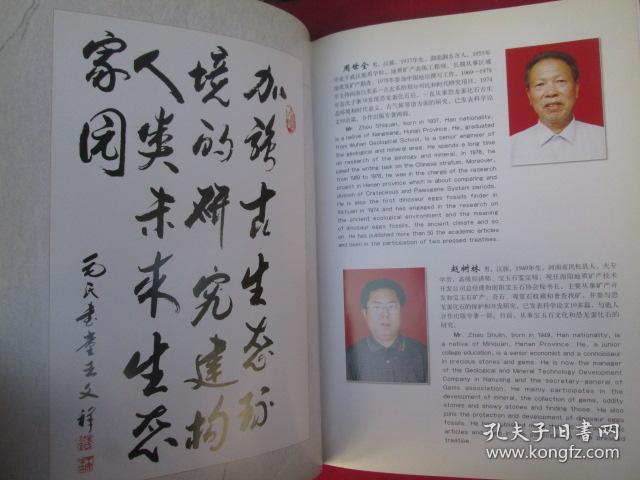 加强古生态环
境的研究建构
人类未来生态
家园
周世全 男，汉族，1937年生，湖南湘乡市人，1955年
Mr. Zhou Shiquan, born in 1937, Han nationality,
is a native of Xiangxiang, Hunan Province. He, graduated
from Wuhan Geological School, is a senior engineer of
the geological and mineral area. He spends a long time
on research of the geology and mineral. In 1978, he
joined the writing task on the Chinese stratum. Moreover,
from 1969 to 1978, he was in the charge of the research
project in Henan province which is about comparing and
division of Cretaceous and Paleogene System periods.
He is also the first dinosaur eggs fossils finder in
Xichuan in 1974 and has engaged in the research on
the ancient ecological environment and the meaning
of dinosaur eggs fossils, the ancient climate and so
on. He has published more than 50 the academic articles
and been in the participation of two pressed treatises.
赵树林 男，汉族，1949年生，河南省民权县人，大专
学历，高级经济师、宝玉石鉴定师，现任南阳地质矿产技术
开发公司总经理和南阳宝玉石协会秘书长，主要从事矿产开
发和宝玉石矿产、奇石、观赏石收藏和普查找矿，并参与恐
龙蛋化石的保护和开发研究，已发表科学论文10多篇，与他人
合作出版专著一部。目前，从事宝玉石文化和恐龙蛋化石的
研究。
Mr. Zhao Shulin, born in 1949, Han nationality, is
a native of Minquan, Henan Province. He, a junior
college education, is a senior economist and a connoisseur
in precious stones and gems. He is now the manager
of the Geological and Mineral Technology Development
Company in Nanyang and the secretary-general of
Gems association. He mainly participates in the
development of mineral, the collection of gems, oddity
stones and snowy stones and finding those. He also
joins the protection and development of dinosaur eggs
fossils. He
articles and
treatise.
孔夫子旧书网
www.kongfz.com